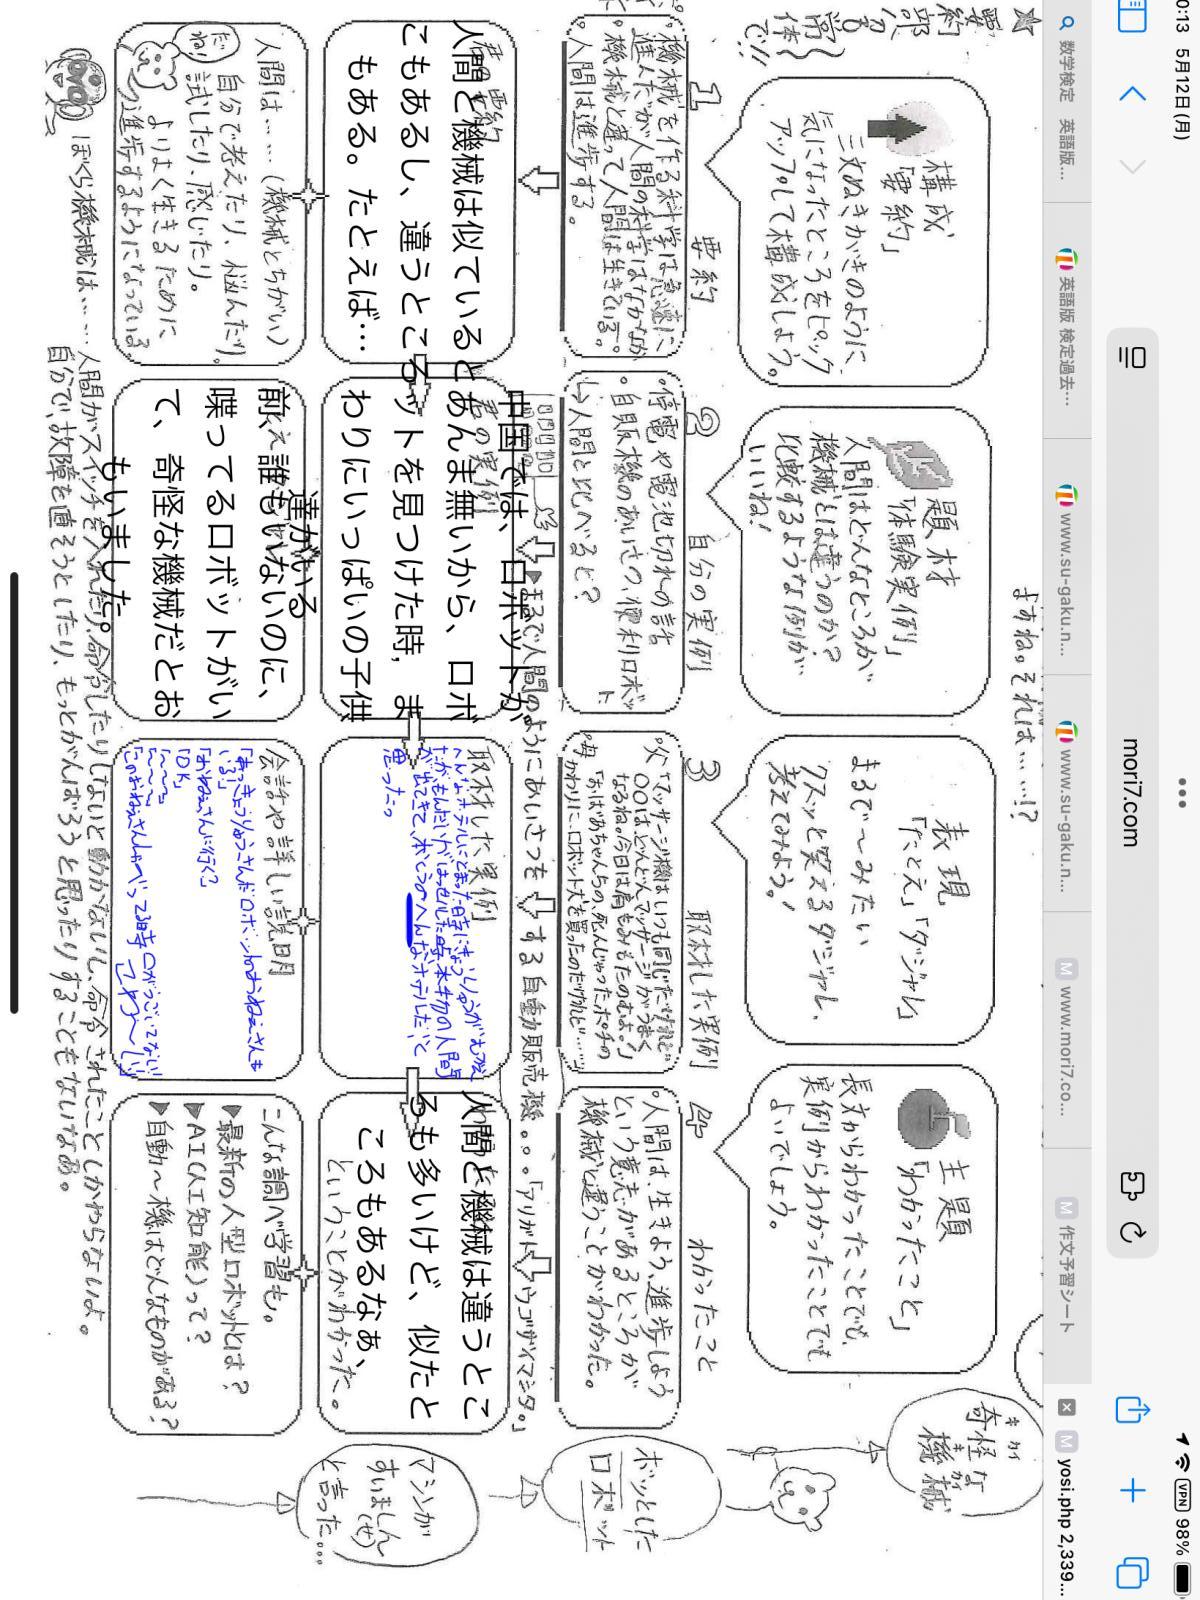 0:13 5月12日(月)
mori7.com
VPN 98%
数学検定 英語版…
英語版 検定過去…
www.su-gaku.n…
www.su-gaku.n…
www.mori7.co…
作文予習シート
yosi.php 2,339…
よすね。それは……!?
奇怪な
キカイ
機械
キカイ
構成
「要約」
三文ぬきがきのように
気になったところをピック
アップして構成しよう。
題材
「体験実例」
人間はどんなところが
機械とは違うのか?
比較するような例が
いいね!
表現
「たとえ」「ダジャレ」
まるで〜みたい
クスッと笑えるダジャレ、
考えてみよう!
主題
「わかったこと」
長文からわかったことでも、
実例からわかったことでも
よいでしょう。
1 要約
・機械を作る科学は急速に
進んだが人間の科学はなかなか
・機械と違って人間は生きている。
・人間は進歩する。
2 自分の実例
・停電や電池切れの話
・自販機のあいさつ、便利ロボット
↳人間と比べると?
3 取材した実例
・父「マッサージ機はいつも同じだけれど
〇〇はどんどんマッサージがうまく
なるね。今日は肩もみもたのむよ。」
・母「おばあちゃんちの、死んじゃったポチの
かわりに、ロボット犬を買ったのだけれど……」
4 わかったこと
・人間は、生きよう、進歩しよう
という意志があるところが
機械と違うことがわかった。
ボッとした
ロボット
▶まるで人間のようにあいさつをする自動販売機。。。「アリガトウゴザイマシタ。」
君の要約
人間と機械は似ていると
こもあるし、違うところ
もある。たとえば…
君の実例
中国では、ロボットが
あんま無いから、ロボ
ットを見つけた時, ま
わりにいっぱいの子供
達がいる
取材した実例
へんなホテルにとまった時にきょうりゅうがむかえ
たがもんだいがはっせいした時、本物の人間
が出てきて、本とうのへんなホテルだ、と
思った。
人間と機械は違うとこ
ろも多いけど、似たと
ころもあるなぁ、
ということがわかった。
マシンが
すいましん(せ)
と言った…
人間は……(機械とちがい)
自分で考えたり、悩んだり
試したり、感じたり。
よりよく生きるために
進歩するようになっている
だね!
前え誰もいないのに、
喋ってるロボットがい
て、奇怪な機械だとお
もいました。
会話や詳しい説明
「あっきょうりゅうさんだロボットのおねえさんも
いる!」
「おねえさんに行く?」
「OK」
「〜〜〜〜」
「このおねえさんしゃべってる時口がうごいてない!
こわ〜い」
こんな調べ学習も。
▶最新の人型ロボットとは?
▶AI(人工知能)って?
▶自動〜機はどんなものがある?
ぼくら機械は……人間がスイッチを入れたり、命令したりしないと動かないし、命令されたことしかやらないよ。
自分で故障を直そうとしたり、もっとがんばろうと思ったりすることもないなぁ。